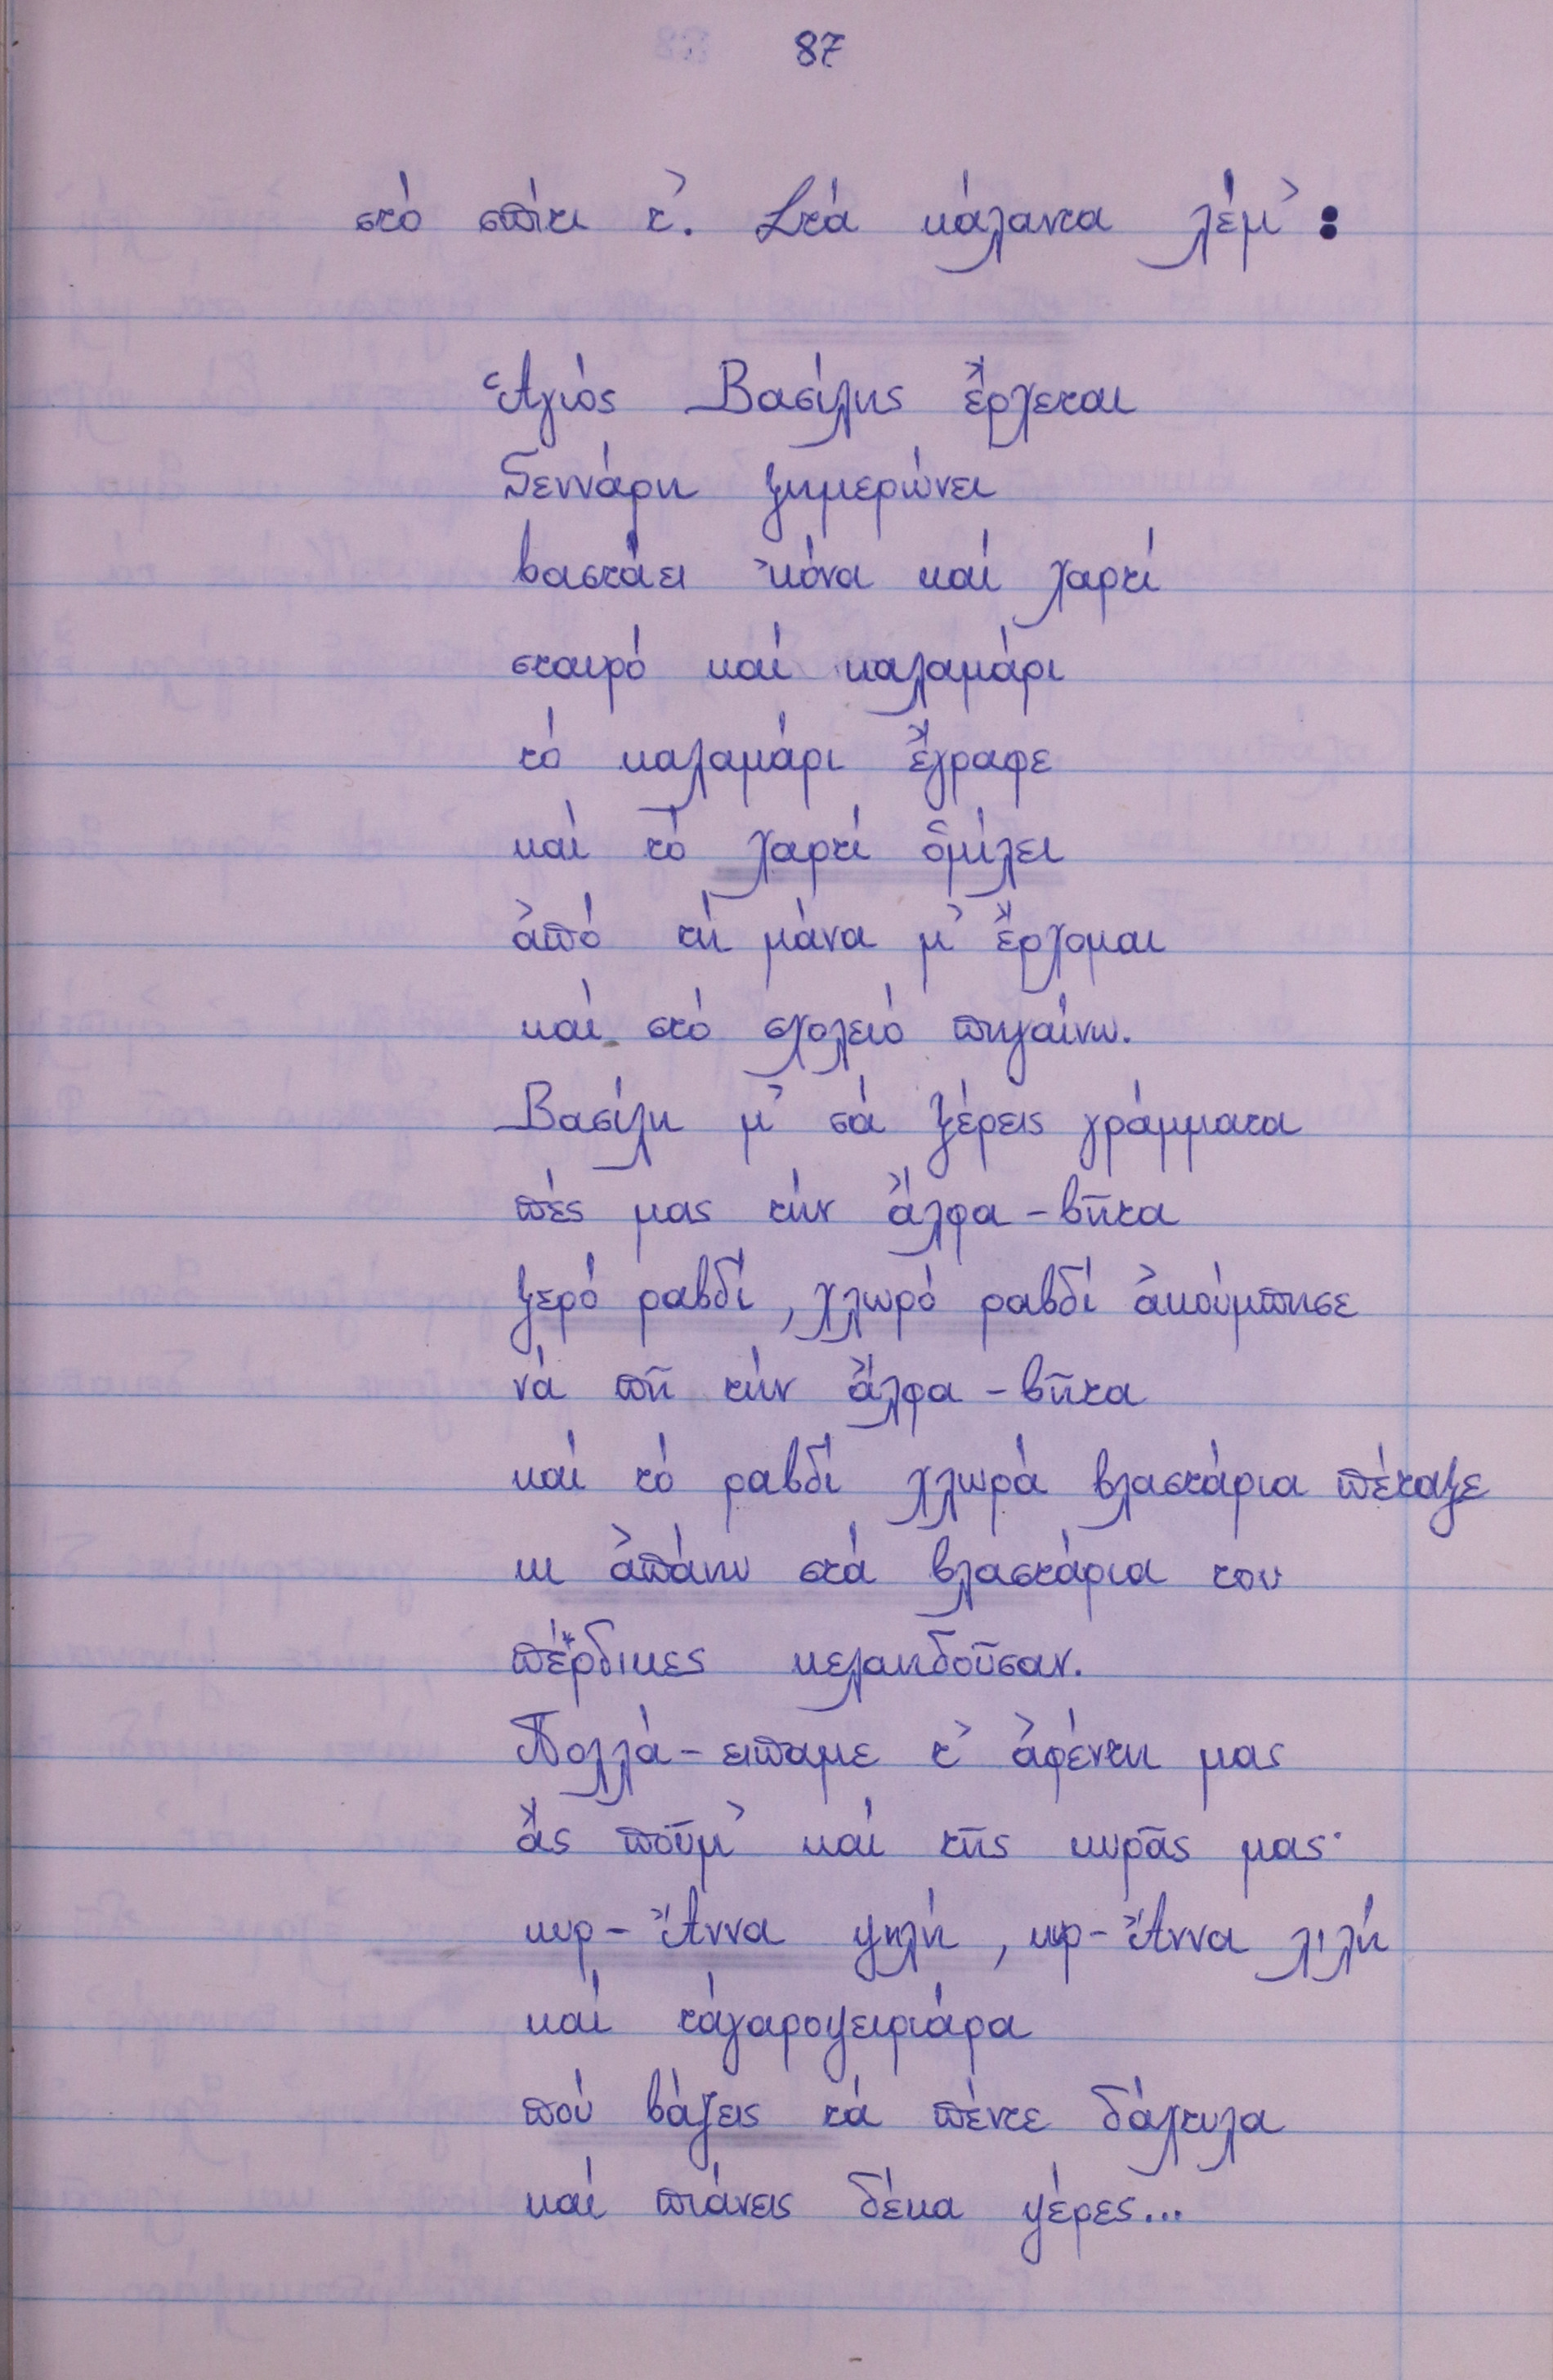 87
στό σπίτι τ᾽. Στά κάλαντα λέμ᾽:
Ἁγιός Βασίλης ἔρχεται
Γεννάρη ξημερώνει
βαστάει ᾽κόνα καί χαρτί
σταυρό καί καλαμάρι
τό καλαμάρι ἔγραφε
καί τό χαρτί ὁμίλει
ἀπό τή μάνα μ᾽ ἔρχομαι
καί στό σχολειό πηγαίνω.
Βασίλη μ᾽ σά ξέρεις γράμματα
πές μας τήν ἄλφα - βῆτα
ξερό ραβδί, χλωρό ραβδί ἀκούμπησε
νά πῆ τήν ἄλφα - βῆτα
καί τό ραβδί χλωρά βλαστάρια πέταξε
κι ἀπάνω στά βλαστάρια του
πέρδικες κελαηδοῦσαν.
Πολλά - ειπαμε τ᾽ ἀφέντη μας
ἄς ποῦμ᾽ καί τῆς κυρᾶς μας·
κυρ - Ἄννα ψηλή, κυρ - Ἄννα λιλή
καί τάγαροψειριάρα
πού βάζεις τά πέντε δάχτυλα
καί πιάνεις δέκα ψέρες...